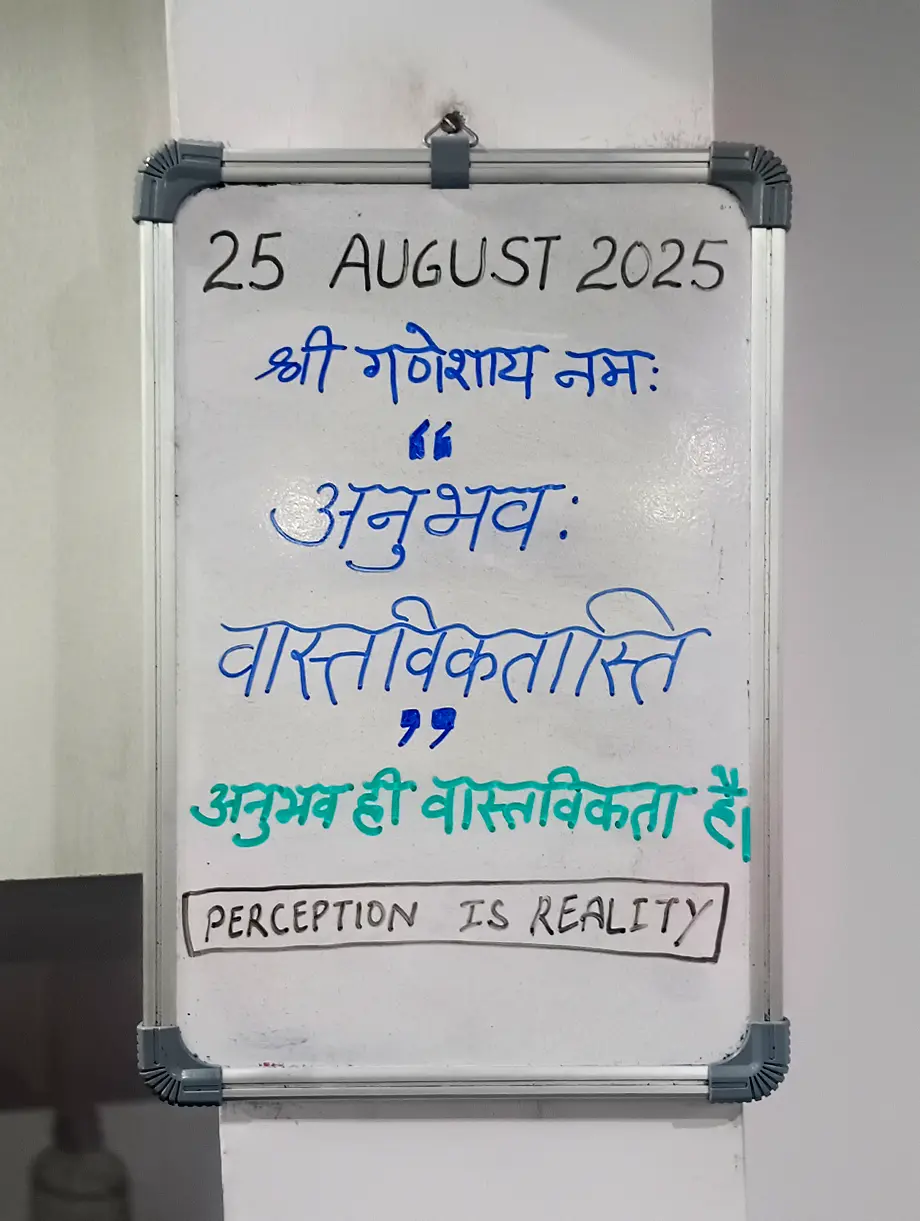 25 AUGUST 2025
श्री गणेशाय नमः
“
अनुभवः
वास्तविकतास्ति
”
अनुभव ही वास्तविकता है।
PERCEPTION IS REALITY